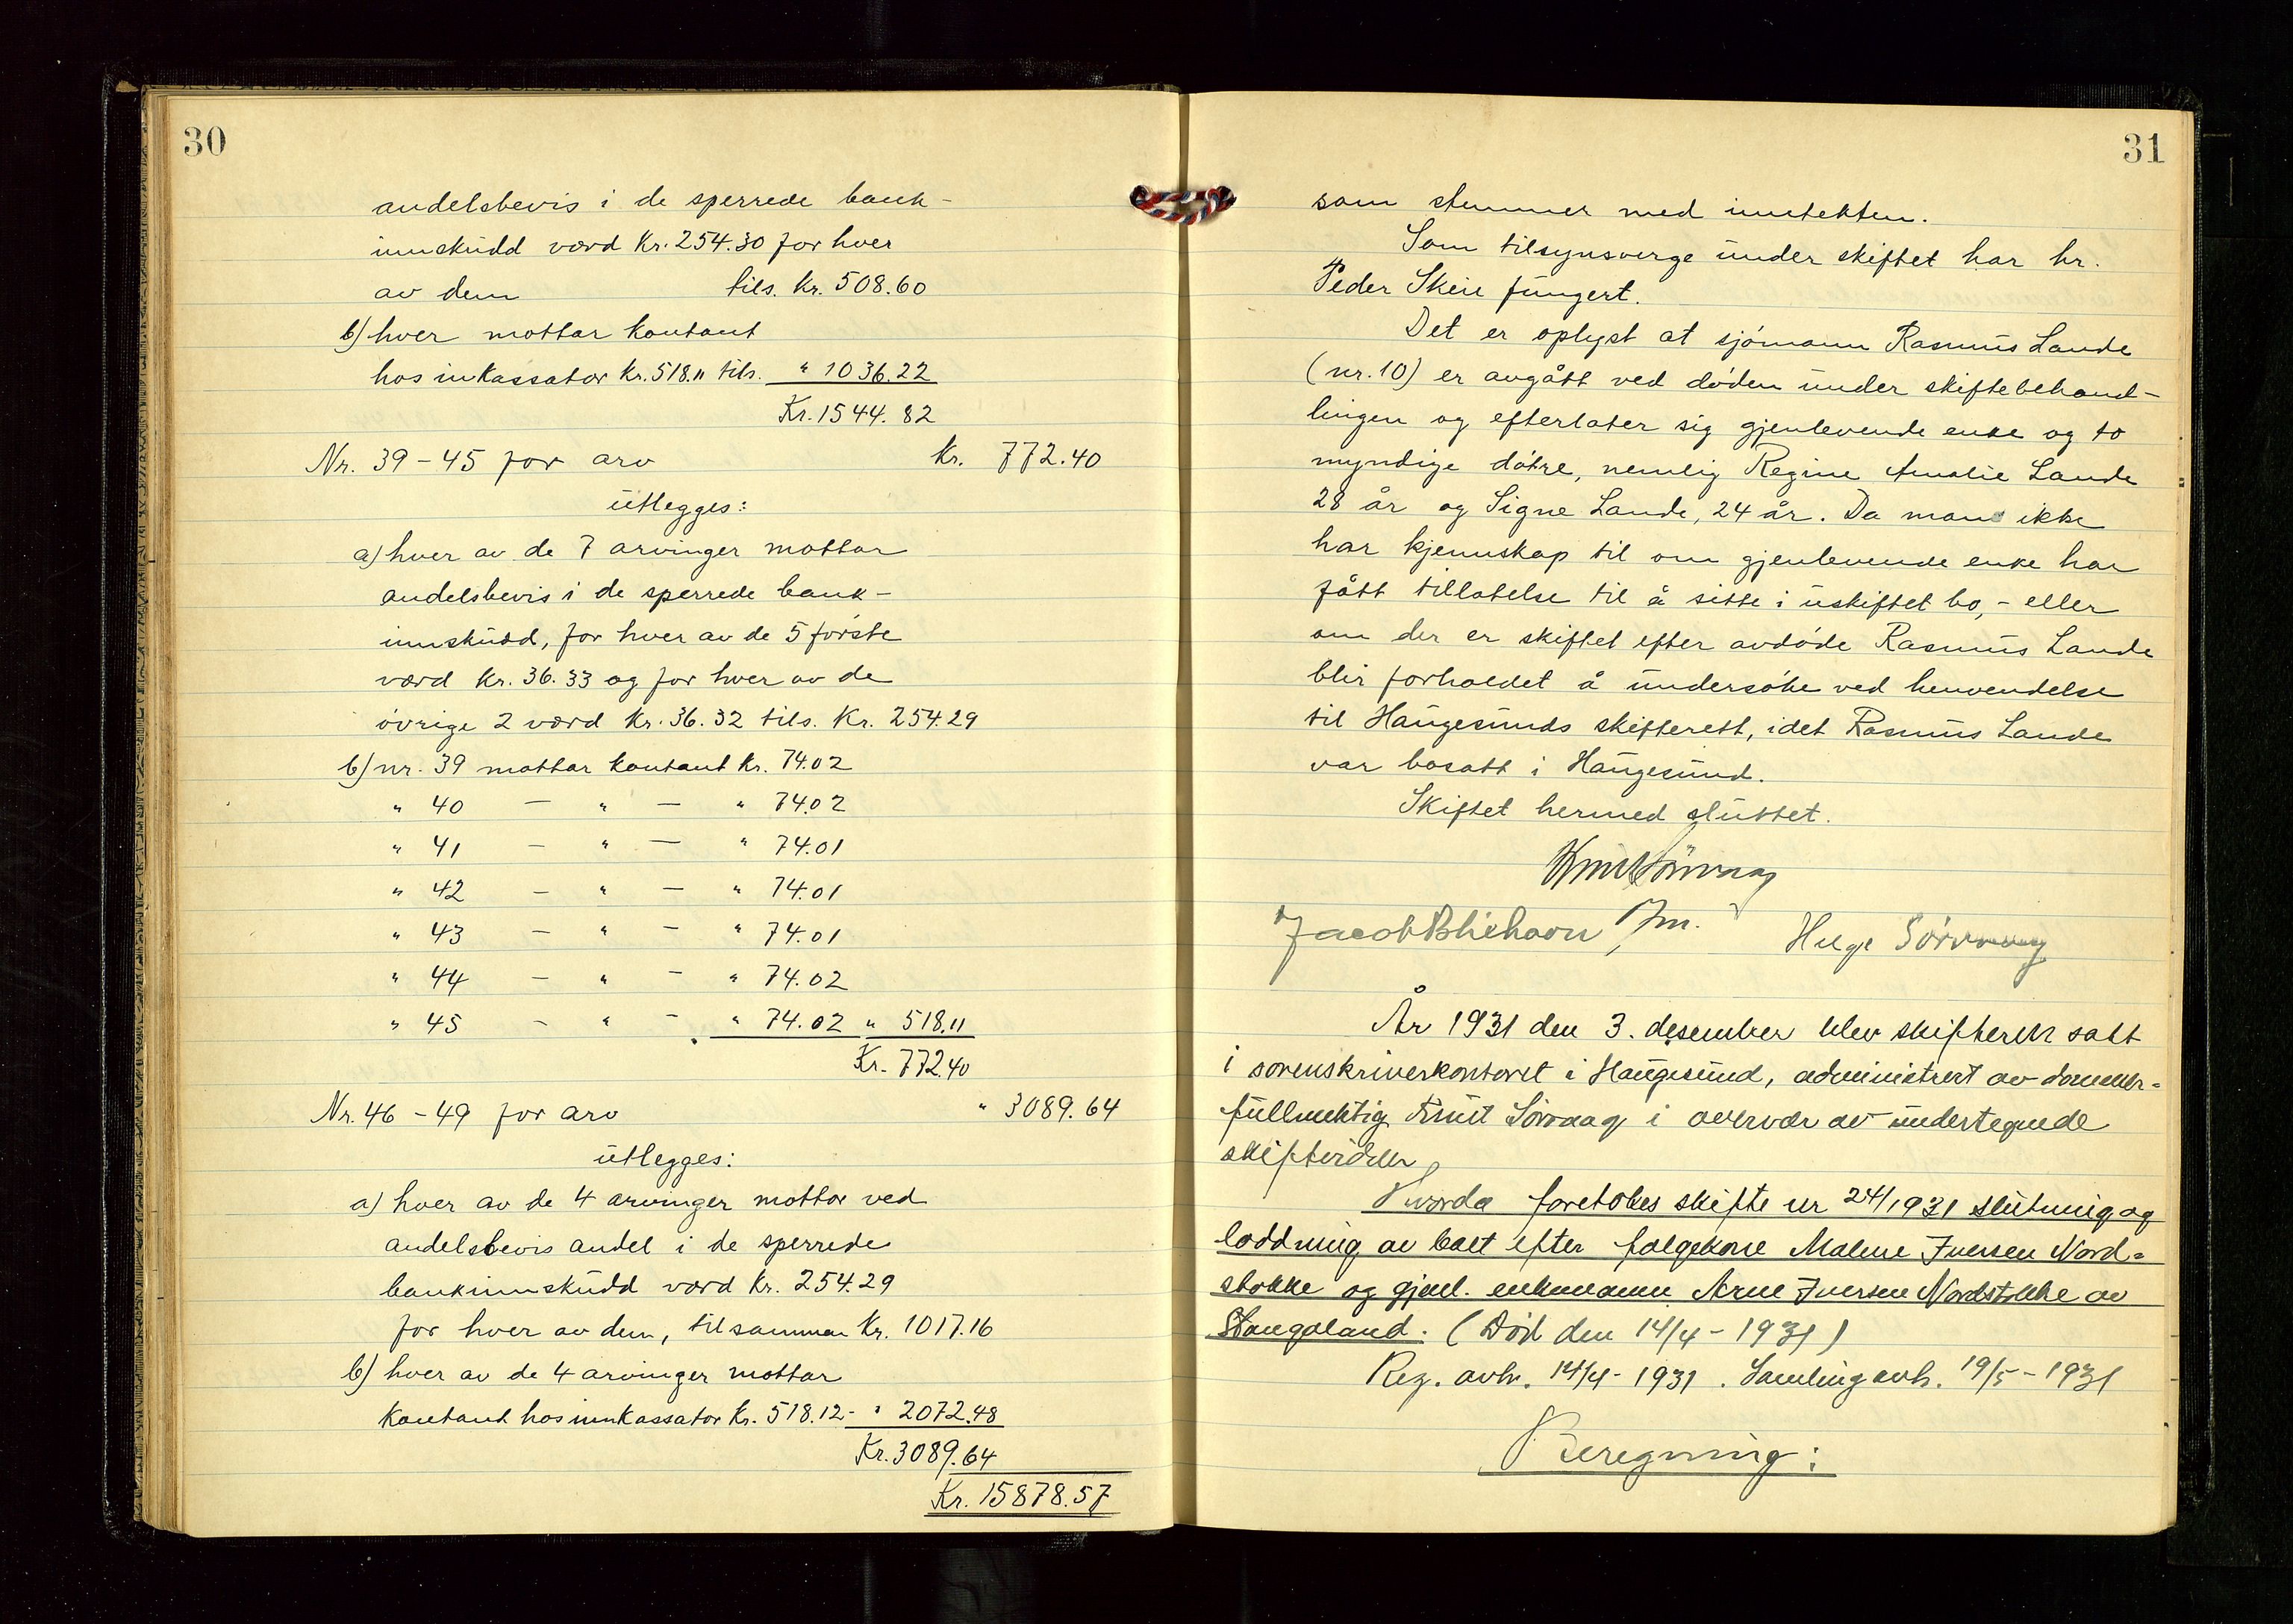 30
andelsbevis i de sperrede bank-
innskudd værd Kr. 254.30 for hver
av dem tils. Kr. 508.60
b) hver mottar kontant
hos inkassator Kr. 518.11 tils. " 1036.22
Kr. 1544.82
Nr. 39-45 for arv Kr. 772.40
utlegges:
a) hver av de 7 arvinger mottar
andelsbevis i de sperrede bank-
innskudd, for hver av de 5 første
værd Kr. 36.33 og for hver av de
övrige 2 værd Kr. 36.32 tils. Kr. 254.29
b) nr. 39 mottar kontant Kr. 74.02
" 40 — " — " 74.02
" 41 — " — " 74.01
" 42 — " — " 74.01
" 43 — " — " 74.01
" 44 — " — " 74.02
" 45 — " — " 74.02 " 518.11
Kr. 772.40
Nr. 46-49 for arv " 3089.64
utlegges:
a) hver av de 4 arvinger mottar ved
andelsbevis andel i de sperrede
bankinnskudd værd Kr. 254.29
for hver av dem, tilsammen Kr. 1017.16
b) hver av de 4 arvinger mottar
kontant hos innkassator Kr. 518.12- " 2072.48
Kr. 3089.64
Kr. 15878.57
31
som stemmer med inntekten.
Som tilsynsverge under skiftet har hr.
Peder Skeie fungert.
Det er oplyst at sjömann Rasmus Lande
(nr. 10) er avgått ved döden under skiftebehand-
lingen og efterlater sig gjenlevende enke og to
myndige dötre, nemlig Regine Amalie Lande
28 år og Signe Lande, 24 år. Da man ikke
har kjennskap til om gjenlevende enke har
fått tillatelse til å sitte i uskiftet bo, - eller
om der er skiftet efter avdöde Rasmus Lande
blir forholdet å undersöke ved henvendelse
til Haugesunds skifterett, idet Rasmus Lande
var bosatt i Haugesund.
Skiftet hermed sluttet.
Knut Sörvaag
Jacob Jm. Helge Sörvaag
År 1931 den 3. desember blev skifterett satt
i sorenskriverkontoret i Haugesund, administrert av dommer-
fullmektig Knut Sörvaag i overvær av undertegnede
skiftevidner
Hvorda foretokes skifte nr 24/1931 slutning og
loddning av boet efter følgekone Malene Iversen Nord-
stokke og gjenl. enkemann Arne Iversen Nordstokke av
Stangaland. (Död den 14/4-1931)
Reg. avh. 14/4-1931. Samling avh. 19/5-1931
Beregning: